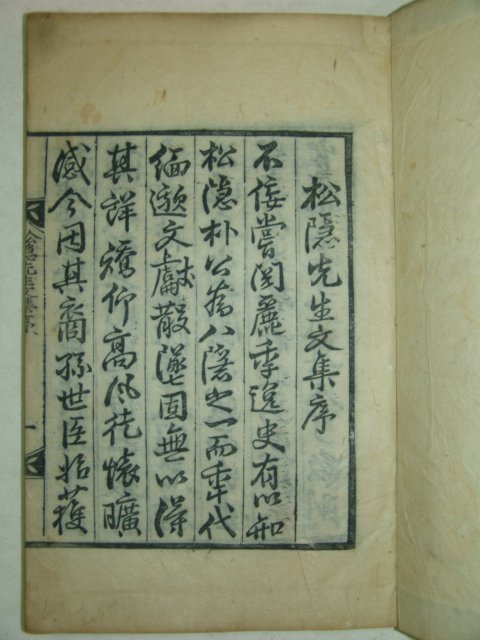 松隱先生文集序
不佞嘗閱麗季逸史有以知
松隱朴公爲八隱之一而年代
緬邈文獻散墜固無以得
其詳矯仰高風徒懷曠
感今因其裔孫世臣始獲
松隱先生文集序
一